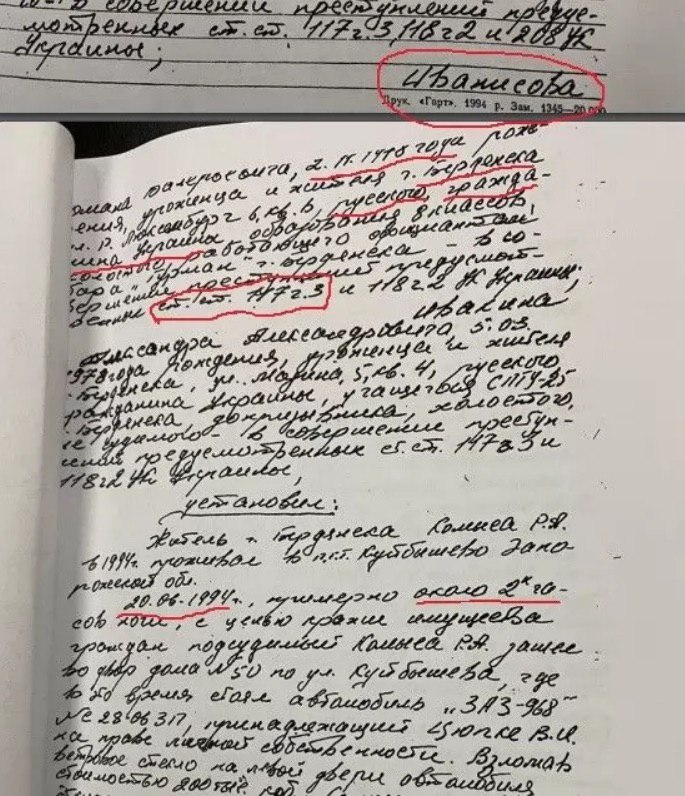 в совершении преступлений предус-
мотренных ст.ст. 117 ч.3, 118 ч2 и 208 УК
Украины;
Иванисова
Друк. «Гарт». 1994 р. Зам. 1345—20.000
Валеросовига, 2. IV. 1978 года рож-
дения, уроженца и жителя г. Бердянска
Р. Люксембург 6, кв. 6, русского, гражда-
нина Украины, образования 8 классов,
холостого, работающего официантом
бара г. Бердянска - в со-
вершении преступлений предусмот-
ренных ст.ст. 117 ч.3 и 118 ч2 УК Украины;
Ивакина
Александра Александровича, 5.03.
1978 года рождения, уроженца и жителя
г. Бердянска, ул. 5, кв. 4, русского,
гражданина Украины, учащегося СПТУ-25
г. Бердянска, допризывника, холостого,
не судимого - в совершение преступ-
лений предусмотренных ст.ст. 117 ч.3 и
118 ч2 УК Украины,
установил:
Житель г. Бердянска Колыса Р.А.
в 1994г. проживал в п.г.т. Куйбышево Запо
рожской обл.
20.06.1994г., примерно около 2х ча-
сов ночи, с целью кражи имущества
граждан подсудимый Колыса Р.А. зашел
во двор дома №50 по ул. Куйбышева, где
в то время стоял автомобиль „ЗАЗ-968"
№С 2806 ЗП, принадлежащий Цюпке В.И.
на праве личной собственности. Взломав
ветровое стекло на левой двери автомобиля
стоимостью 200 тыс.